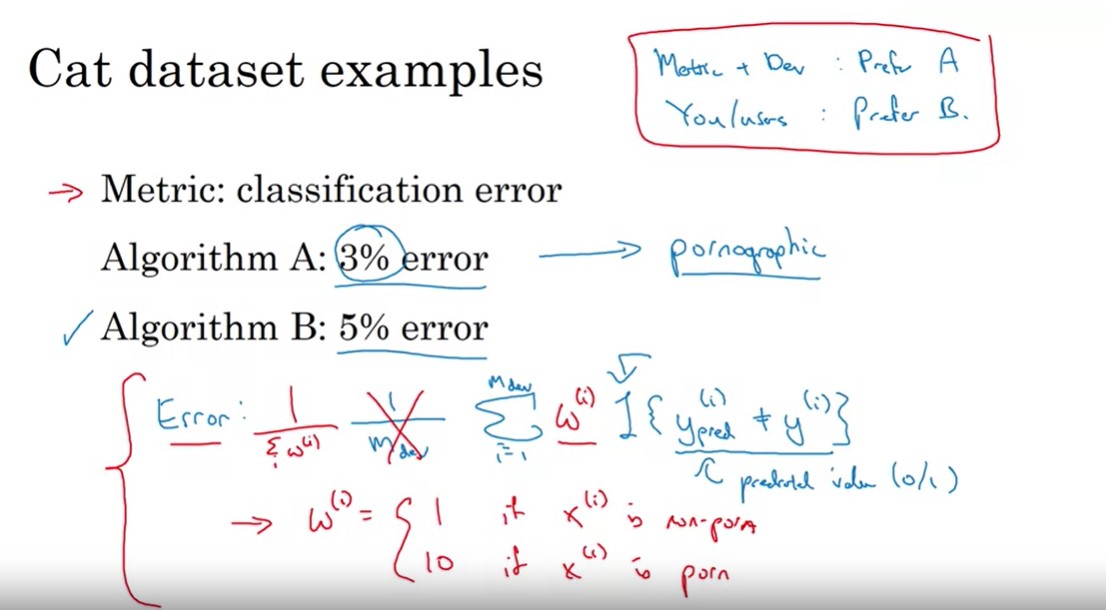 Cat dataset examples
Metric + Dev : Prefer A
You/users : Prefer B.
→ Metric: classification error
Algorithm A: 3% error → pornographic
✓ Algorithm B: 5% error
Error: 1/Σᵢ w⁽ⁱ⁾ 1/m_dev Σᵢ₌₁^(m_dev) w⁽ⁱ⁾ 1{y_pred⁽ⁱ⁾ ≠ y⁽ⁱ⁾}
predicted value (0/1)
→ w⁽ⁱ⁾ = { 1 if x⁽ⁱ⁾ is non-porn
10 if x⁽ⁱ⁾ is porn